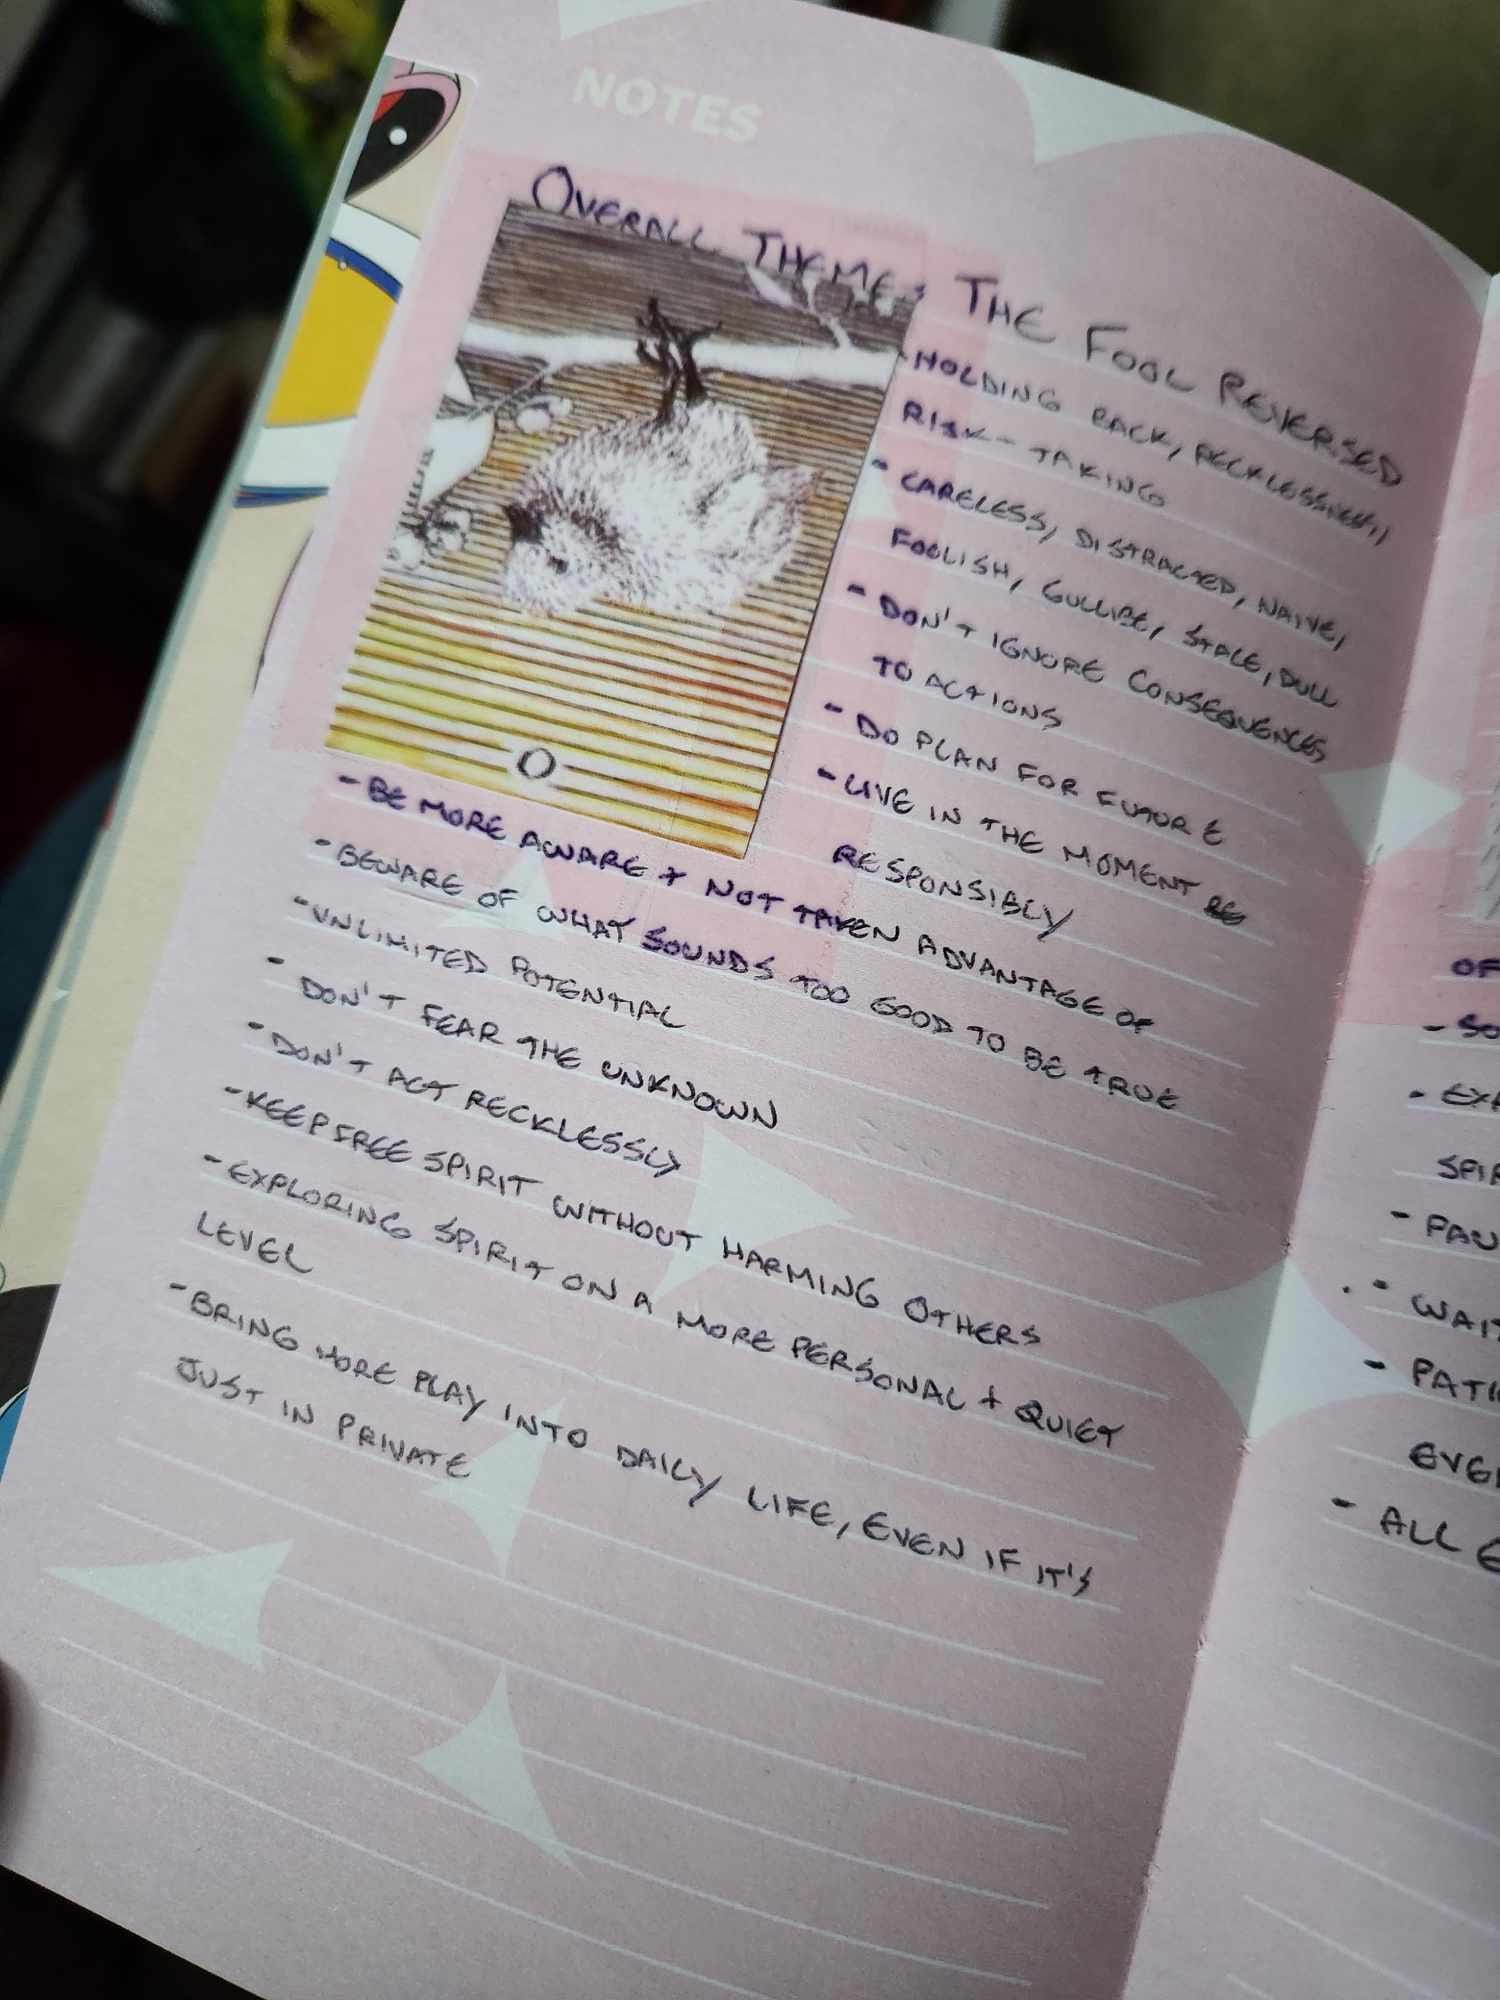 NOTES
OVERALL THEMES THE FOOL REVERSED
- HOLDING BACK, RECKLESSNESS,
RISK-TAKING
- CARELESS, DISTRACTED, NAIVE,
FOOLISH, GULLIBE, STALE, DULL
- DON'T IGNORE CONSEQUENCES
TO ACTIONS
- DO PLAN FOR FUTURE
- LIVE IN THE MOMENT
RESPONSIBLY
0
- BE MORE AWARE + NOT TAKEN ADVANTAGE OF
- BEWARE OF WHAT SOUNDS TOO GOOD TO BE TRUE
- UNLIMITED POTENTIAL
- DON'T FEAR THE UNKNOWN
- DON'T ACT RECKLESSLY
- KEEP FREE SPIRIT WITHOUT HARMING OTHERS
- EXPLORING SPIRIT ON A MORE PERSONAL + QUIET
LEVEL
- BRING MORE PLAY INTO DAILY LIFE, EVEN IF IT'S
JUST IN PRIVATE
OF
- SO
- EX
SPI
- PAU
- WAI
- PATI
EVE
- ALL